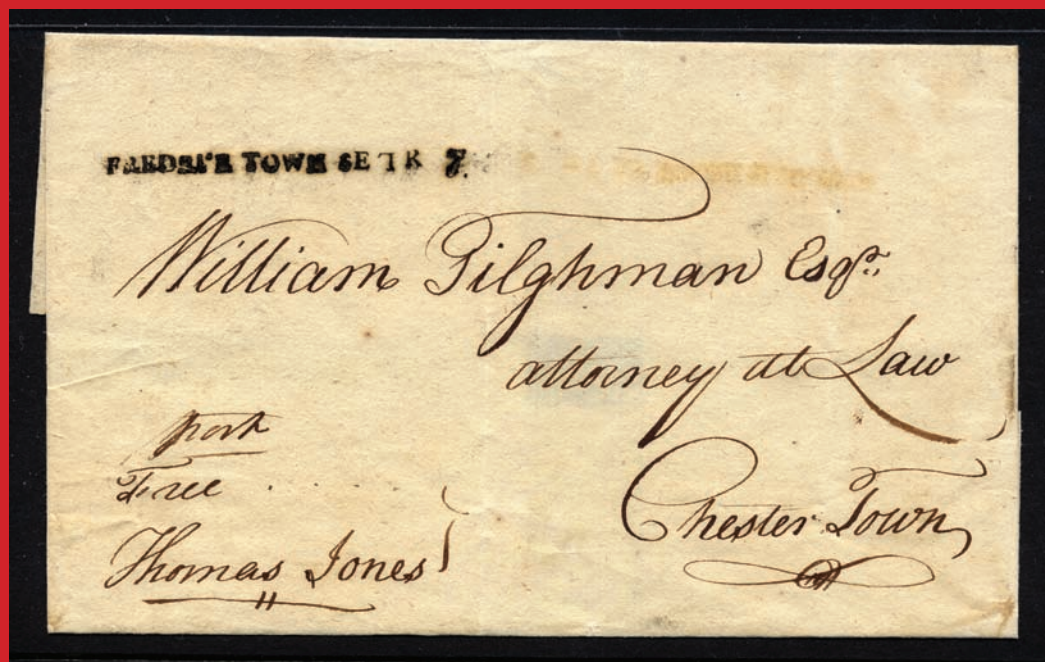 TOWN 7.
William Tilghman Esqr.
attorney at Law
Chester Town
post
Free
Thomas Jones